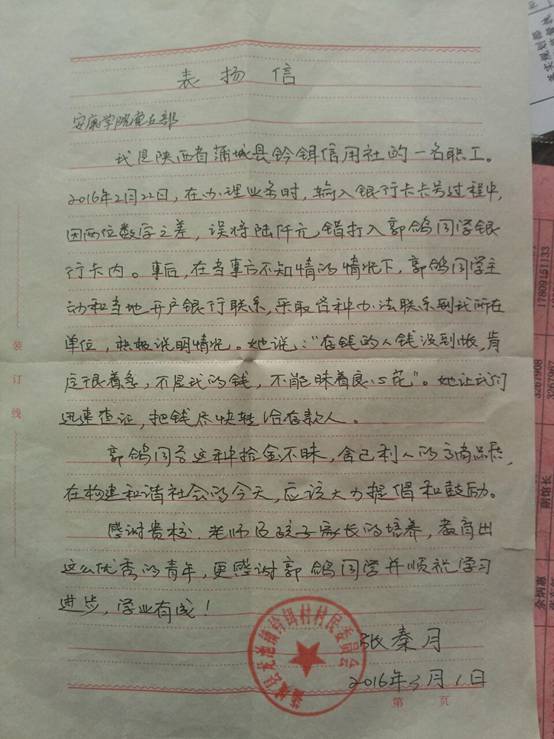 表扬信
安康学院宣传部
我是陕西省蒲城县钤铒信用社的一名职工。
2016年2月22日,在办理业务时,输入银行卡卡号过程中,
因两位数字之差,误将陆仟元错打入郭鸽同学银
行卡内。事后,在当事方不知情的情况下,郭鸽同学主
动和当地开户银行联系,采取各种办法联系到我所在
单位,积极说明情况。她说:“存钱的人钱没到帐,肯
定很着急,不是我的钱,不能昧着良心花”。她让我们
迅速查证,把钱尽快转给存款人。
郭鸽同学这种拾金不昧,舍己利人的高尚品德,
在构建和谐社会的今天,应该大力提倡和鼓励。
感谢贵校、老师及孩子家长的培养,教育出
这么优秀的青年,更感谢郭鸽同学并顺祝学习
进步,学业有成!
张秦月
2016年3月1日
蒲城县龙池镇钤铒村村民委员会
装订线
第 页
17809151133
3267908
3267967
副馆长